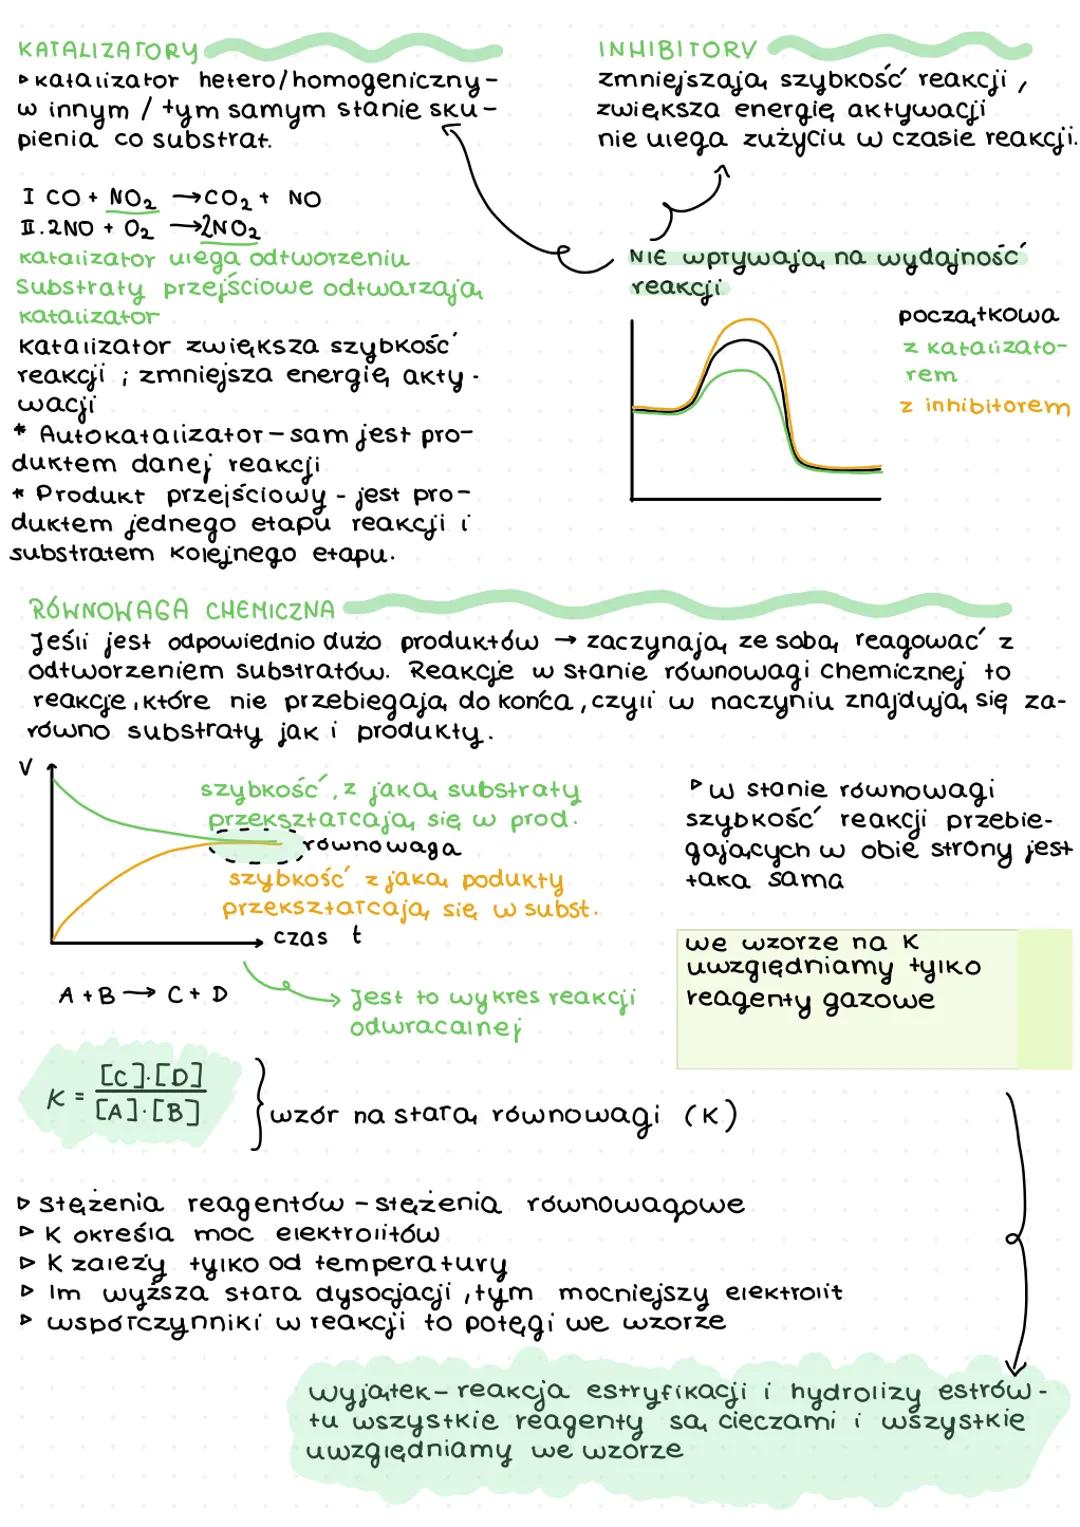 KATALIZATORY
▹ katalizator hetero/homogeniczny -
w innym / tym samym stanie sku-
pienia co substrat.
I CO + NO₂ → CO₂ + NO
II. 2NO + O₂ → 2NO₂
katalizator ulega odtworzeniu
substraty przejściowe odtwarzają
katalizator
katalizator zwiększa szybkość
reakcji ; zmniejsza energię akty-
wacji
* Autokatalizator - sam jest pro-
duktem danej reakcji
* Produkt przejściowy - jest pro-
duktem jednego etapu reakcji i
substratem kolejnego etapu.
INHIBITORY
zmniejszają szybkość reakcji,
zwiększa energię aktywacji
nie ulega zużyciu w czasie reakcji.
NIE wpływają na wydajność
reakcji
początkowa
z katalizato-
rem
z inhibitorem
RÓWNOWAGA CHEMICZNA
Jeśli jest odpowiednio dużo produktów → zaczynają ze sobą reagować z
odtworzeniem substratów. Reakcje w stanie równowagi chemicznej to
reakcje, które nie przebiegają do końca, czyli w naczyniu znajdują się za-
równo substraty jak i produkty.
V
szybkość, z jaką substraty
przekształcają się w prod.
równowaga
szybkość z jaką podukty
przekształcają się w subst.
czas t
▹ w stanie równowagi
szybkość reakcji przebie-
gających w obie strony jest
taka sama
A + B → C + D
Jest to wykres reakcji
odwracalnej
we wzorze na K
uwzględniamy tylko
reagenty gazowe
K = [C]·[D] / [A]·[B]
wzór na stałą równowagi (K)
▹ stężenia reagentów - stężenia równowagowe
▹ K określa moc elektrolitów
▹ K zależy tylko od temperatury
▹ Im wyższa stała dysocjacji, tym mocniejszy elektrolit
▹ współczynniki w reakcji to potęgi we wzorze
wyjątek - reakcja estryfikacji i hydrolizy estrów -
tu wszystkie reagenty są cieczami i wszystkie
uwzględniamy we wzorze